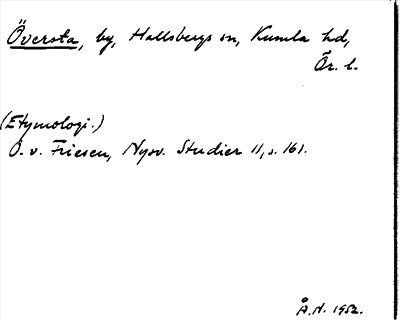 Översta, by, Hallsbergs sn, Kumla hd,
Ör. l.
(Etymologi.)
O. v. Friesen, Nysv. Studier 11, s. 161.
Å. N. 1952.